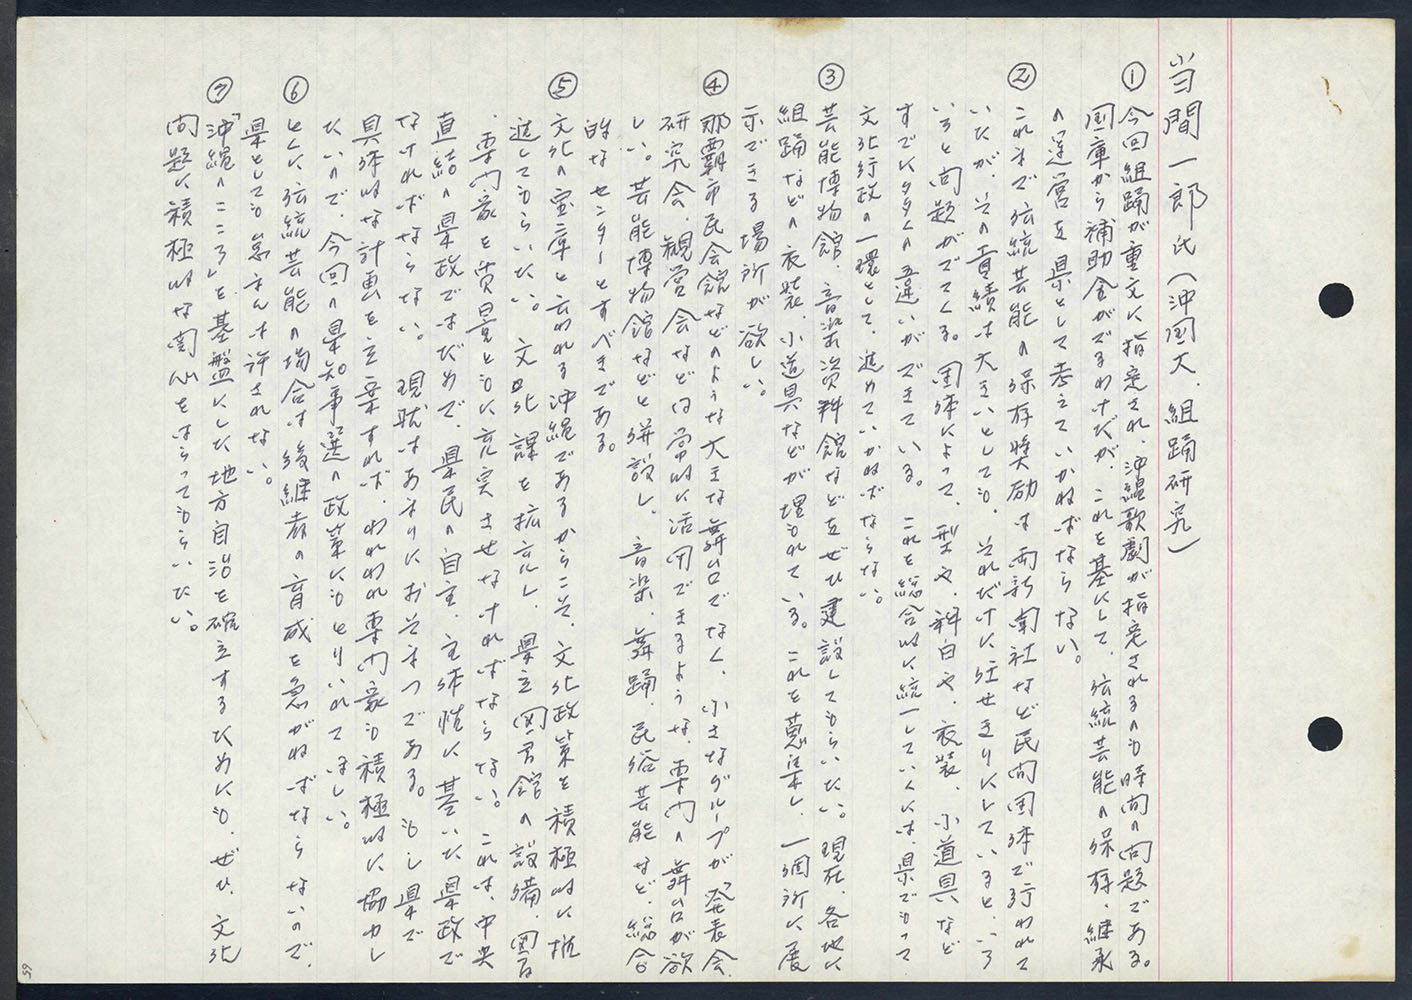 当間一郎氏(沖国大、組踊研究)
①今回組踊が重文に指定され、沖縄歌劇が指定されるのも時間の問題である。
国庫から補助金がでるわけだが、これを基にして、伝統芸能の保存、継承
の運営を県として考えていかねばならない。
②これまで伝統芸能の保存奨励は両新聞社など民間団体で行われて
いたが、その貢績は大きいとしても、それだけに任せきりにしていると、いろ
いろと問題がでてくる。団体によって、型や、科白や、衣装、小道具など
すでに多々の違いができている。これを総合的に統一していくには、県でもって
文化行政の一環として、進めていかねばならない。
③芸能博物館、音楽資料館などをぜひ建設してもらいたい。現在、各地に
組踊などの衣装、小道具などが埋もれている。これを蒐集し、一個所に展
示できる場所が欲しい。
④那覇市民会館などのような大きな舞台でなく、小さなグループが「発表会、
研究会、観賞会などに常時活用できるような、専門の舞台が欲
しい。芸能博物館などと併設し、音楽、舞踊、民俗芸能など、総合
的なセンターとすべきである。
⑤文化の宝庫と云われる沖縄であるからこそ、文化政策を積極的に推
進してもらいたい。文化課を拡充し、県立図書館の設備、図書
、専門家を質量ともに充実させなければならない。これは、中央
直結の県政ではだめで、県民の自主、主体性に基いた県政で
なければならない。現状はあまりにおそまつである。もし県で
具体的な計画を立案すれば、われわれ専門家も積極的に協力し
たいので、今回の県知事選の政策にもとりいれてほしい。
⑥とくに伝統芸能の場合は後継者の育成を急がねばならないので、
県としても怠まんは許されない。
⑦「沖縄のこころ」を基盤にした地方自治を確立するためにも、ぜひ、文化
問題に積極的な関心をはらってもらいたい。
65